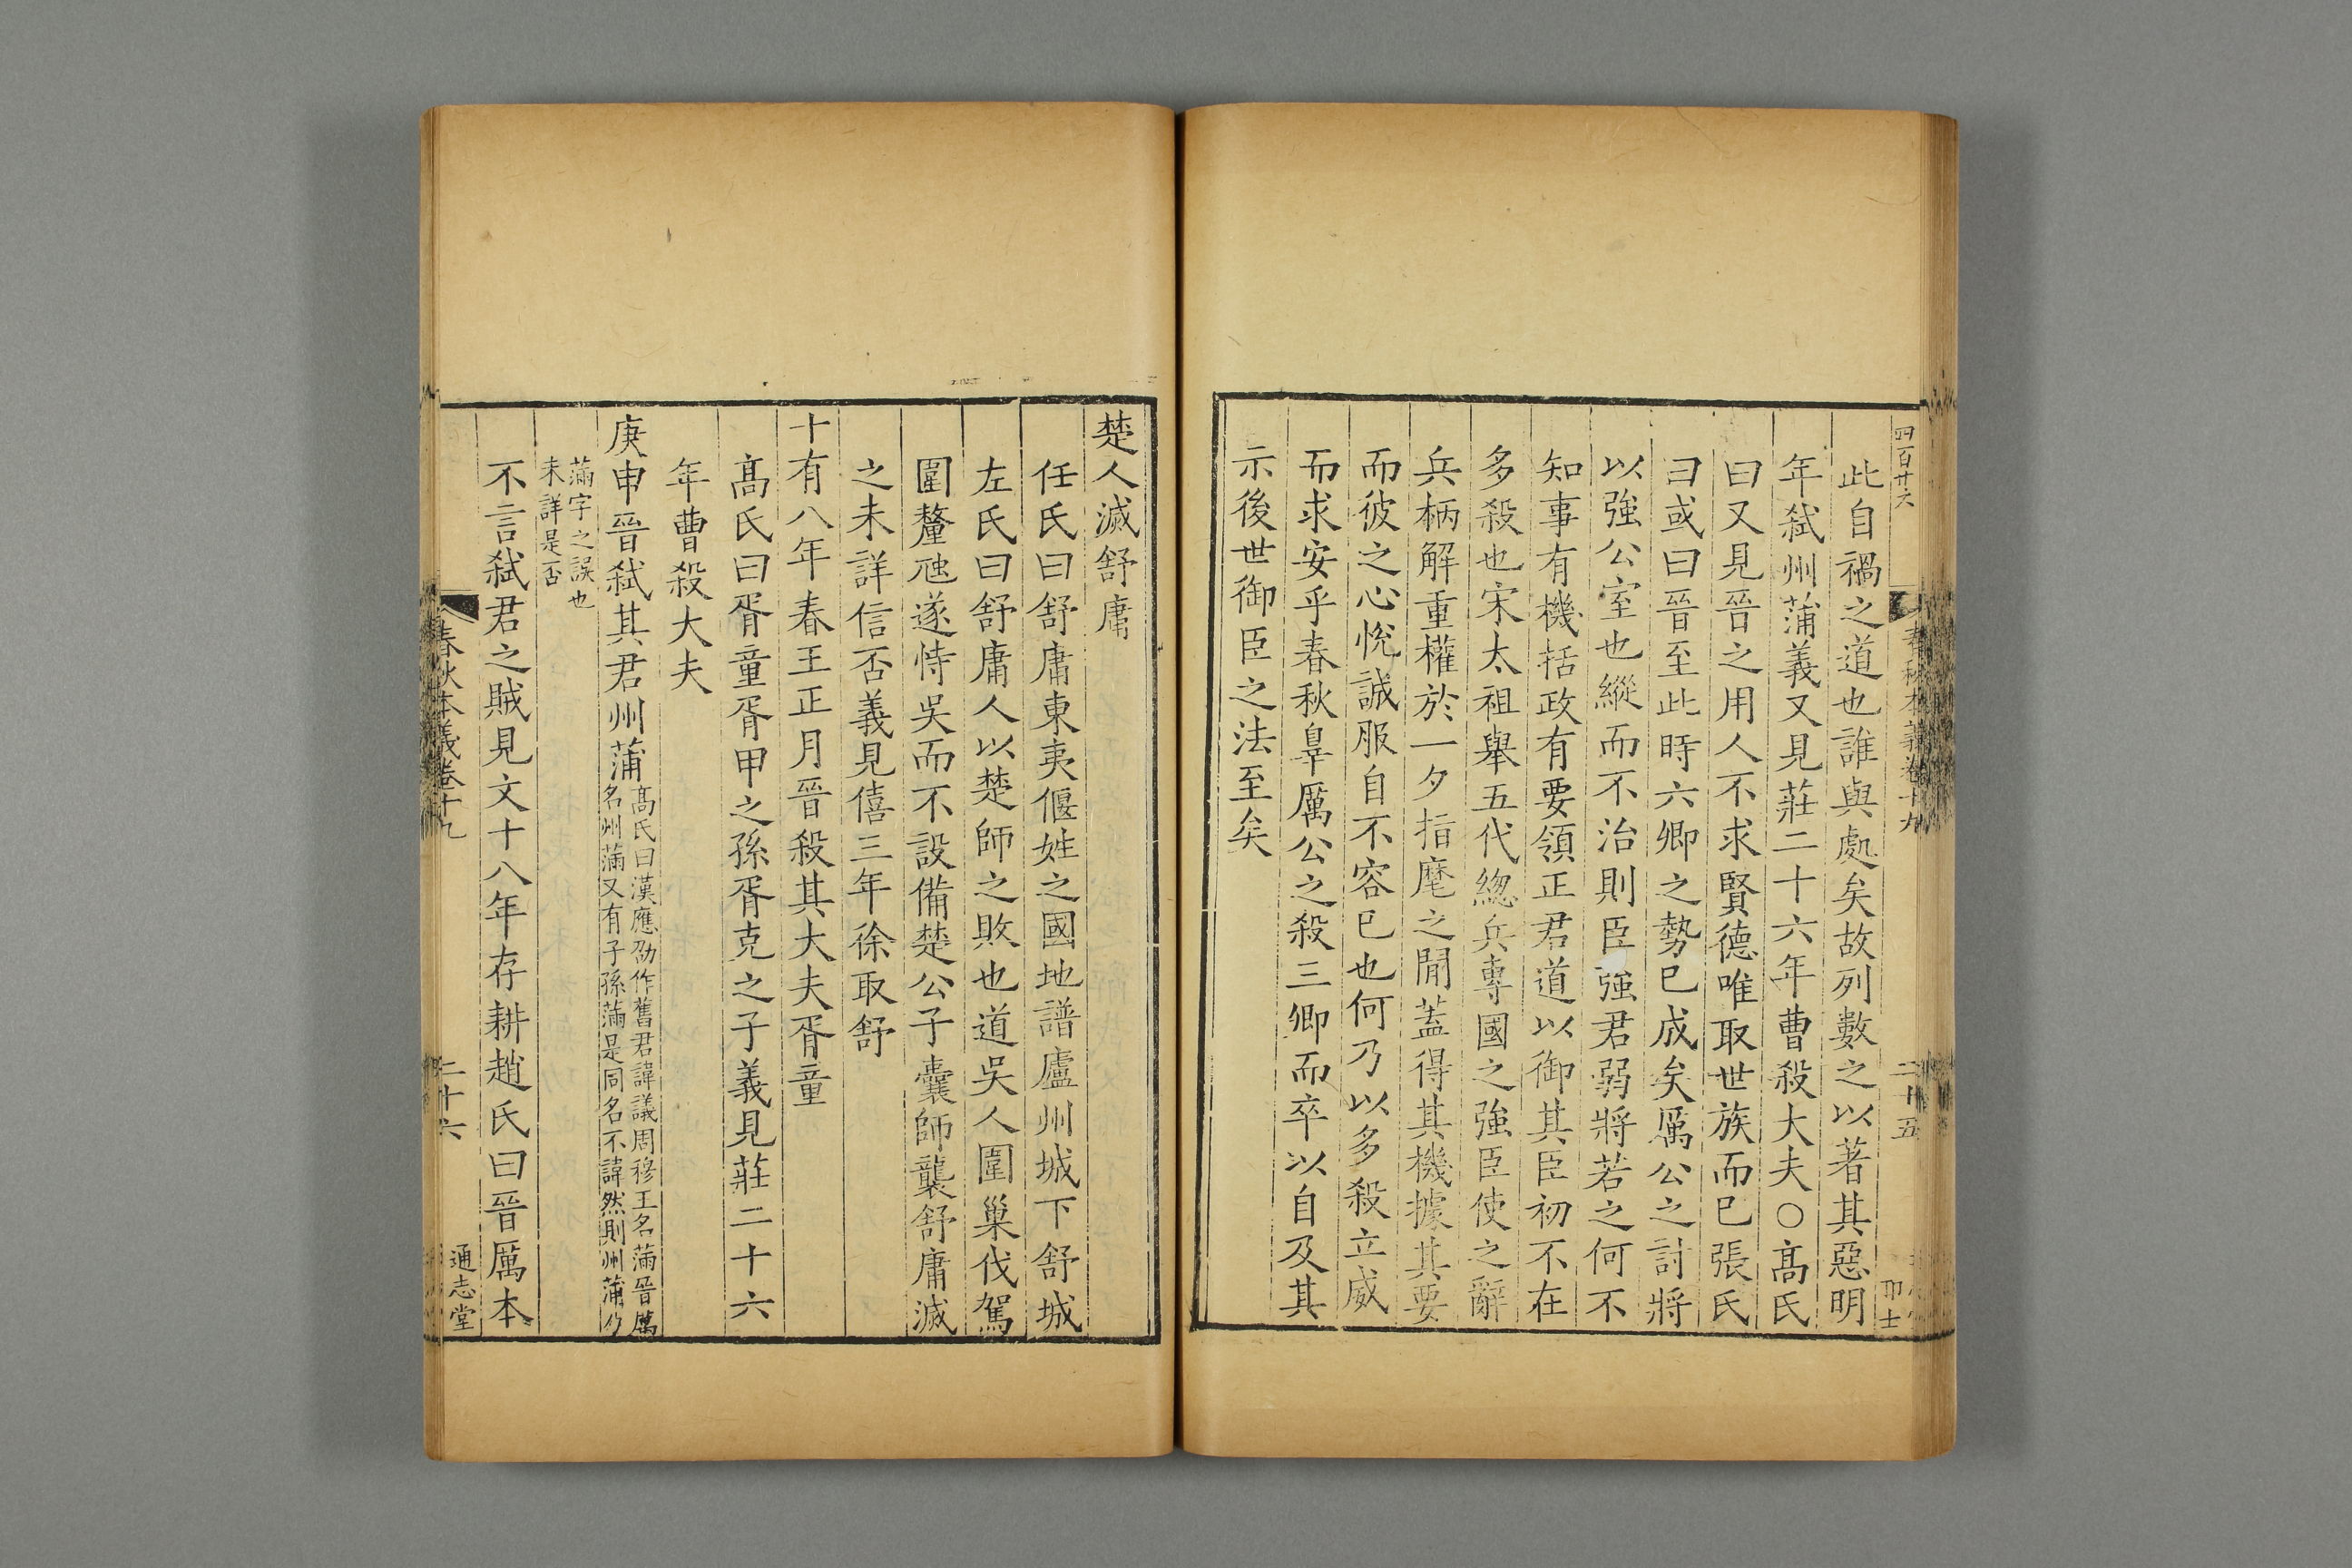 四百廿六
春秋本義卷十九
二十五
此自禍之道也誰與處矣故列數之以著其惡明
年弑州蒲義又見莊二十六年曹殺大夫○髙氏
曰又見晉之用人不求賢德唯取世族而已張氏
曰或曰晉至此時六卿之勢已成矣厲公之討將
以強公室也縱而不治則臣強君弱將若之何不
知事有機括政有要領正君道以御其臣初不在
多殺也宋太祖舉五代緫兵專國之強臣使之辭
兵柄解重權於一夕指麾之閒蓋得其機據其要
而彼之心悅誠服自不容已也何乃以多殺立威
而求安乎春秋辠厲公之殺三卿而卒以自及其
示後世御臣之法至矣
楚人滅舒庸
任氏曰舒庸東夷偃姓之國地譜廬州城下舒城
左氏曰舒庸人以楚師之敗也道吳人圍巢伐駕
圍釐虺遂恃吳而不設備楚公子橐師襲舒庸滅
之未詳信否義見僖三年徐取舒
十有八年春王正月晉殺其大夫胥童
髙氏曰胥童胥甲之孫胥克之子義見莊二十六
年曹殺大夫
庚申晉弑其君州蒲
髙氏曰漢應劭作舊君諱議周穆王名蒲晉厲
名州滿又有子孫蒲是同名不諱然則州蒲乃
滿字之誤也
未詳是否
不言弑君之賊見文十八年存耕趙氏曰晉厲本
春秋本義卷十九
二十六
通志堂